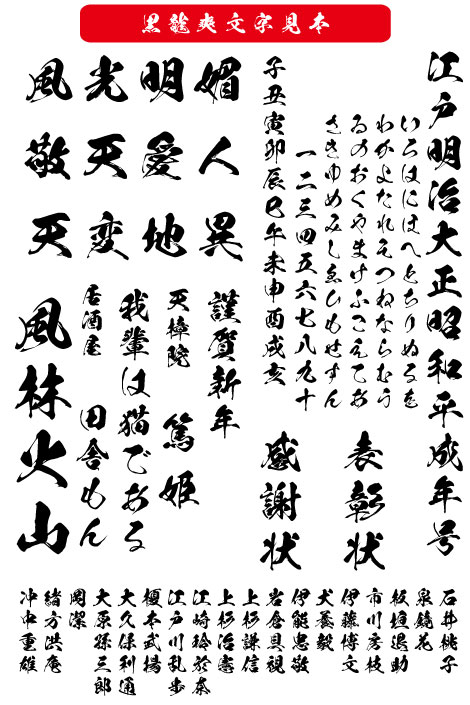 黒龍爽文字見本
江戸明治大正昭和平成年号
いろはにほへとちりぬるを
わかよたれそつねならむう
ゐのおくやまけふこえてあ
さきゆめみしゑひもせすん
一二三四五六七八九十
子丑寅卯辰巳午未申酉戌亥
表彰状
感謝状
風光明媚
敬天愛人
天変地異
謹賀新年
天璋院 篤姫
我輩は猫である
居酒屋 田舎もん
風林火山
石井桃子
泉鏡花
板垣退助
市川房枝
伊藤博文
犬養毅
伊能忠敬
岩倉具視
上杉謙信
上杉治憲
江崎玲於奈
江戸川乱歩
榎本武揚
大久保利通
大原孫三郎
岡潔
緒方洪庵
沖中重雄